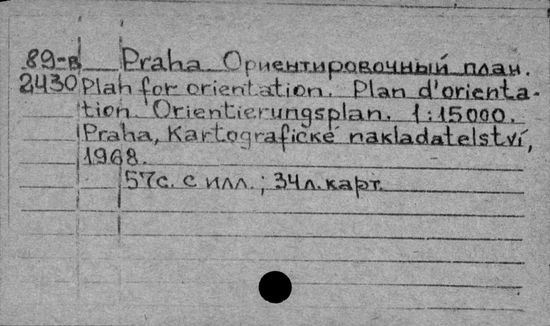 89-в Praha. Ориентировочный план.
2430 Plan for orientation. Plan d'orienta-
tion. Orientierungsplan. 1:15000.
Praha, Kartografické nakladatelství,
1968.
57с. с илл.; 34л. карт.